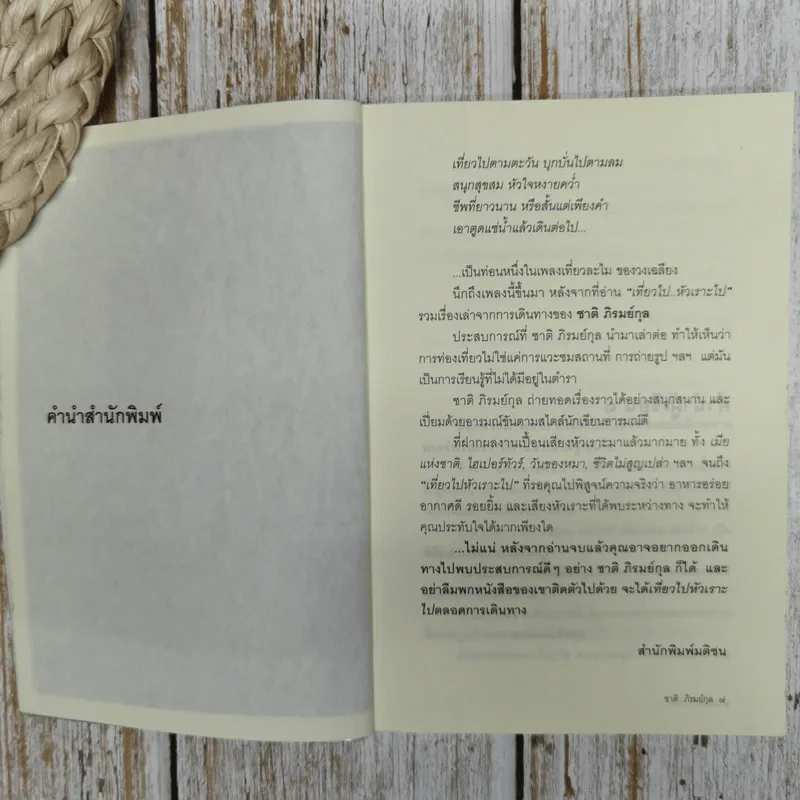 คำนำสำนักพิมพ์
เที่ยวไปตามตะวัน บุกบั่นไปตามลม
สนุกสุขสม หัวใจหงายคว่ำ
ชีพที่ยาวนาน หรือสั้นแต่เพียงคำ
เอาตูดแช่น้ำแล้วเดินต่อไป...
...เป็นท่อนหนึ่งในเพลงเที่ยวละไม ของวงเฉลียง
นึกถึงเพลงนี้ขึ้นมา หลังจากที่อ่าน "เที่ยวไป..หัวเราะไป"
รวมเรื่องเล่าจากการเดินทางของ ชาติ ภิรมย์กุล
ประสบการณ์ที่ ชาติ ภิรมย์กุล นำมาเล่าต่อ ทำให้เห็นว่า
การท่องเที่ยวไม่ใช่แค่การแวะชมสถานที่ การถ่ายรูป ฯลฯ แต่มัน
เป็นการเรียนรู้ที่ไม่ได้มีอยู่ในตำรา
ชาติ ภิรมย์กุล ถ่ายทอดเรื่องราวได้อย่างสนุกสนาน และ
เปี่ยมด้วยอารมณ์ขันตามสไตล์นักเขียนอารมณ์ดี
ที่ฝากผลงานเปื้อนเสียงหัวเราะมาแล้วมากมาย ทั้ง เมีย
แห่งชาติ, ไฮเปอร์ทัวร์, วันของหมา, ชีวิตไม่สูญเปล่า ฯลฯ จนถึง
"เที่ยวไปหัวเราะไป" ที่รอคุณไปพิสูจน์ความจริงว่า อาหารอร่อย
อากาศดี รอยยิ้ม และเสียงหัวเราะที่ได้พบระหว่างทาง จะทำให้
คุณประทับใจได้มากเพียงใด
...ไม่แน่ หลังจากอ่านจบแล้วคุณอาจอยากออกเดิน
ทางไปพบประสบการณ์ดีๆ อย่าง ชาติ ภิรมย์กุล ก็ได้ และ
อย่าลืมพกหนังสือของเขาติดตัวไปด้วย จะได้เที่ยวไปหัวเราะ
ไปตลอดการเดินทาง
สำนักพิมพ์มติชน
ชาติ ภิรมย์กุล ๗